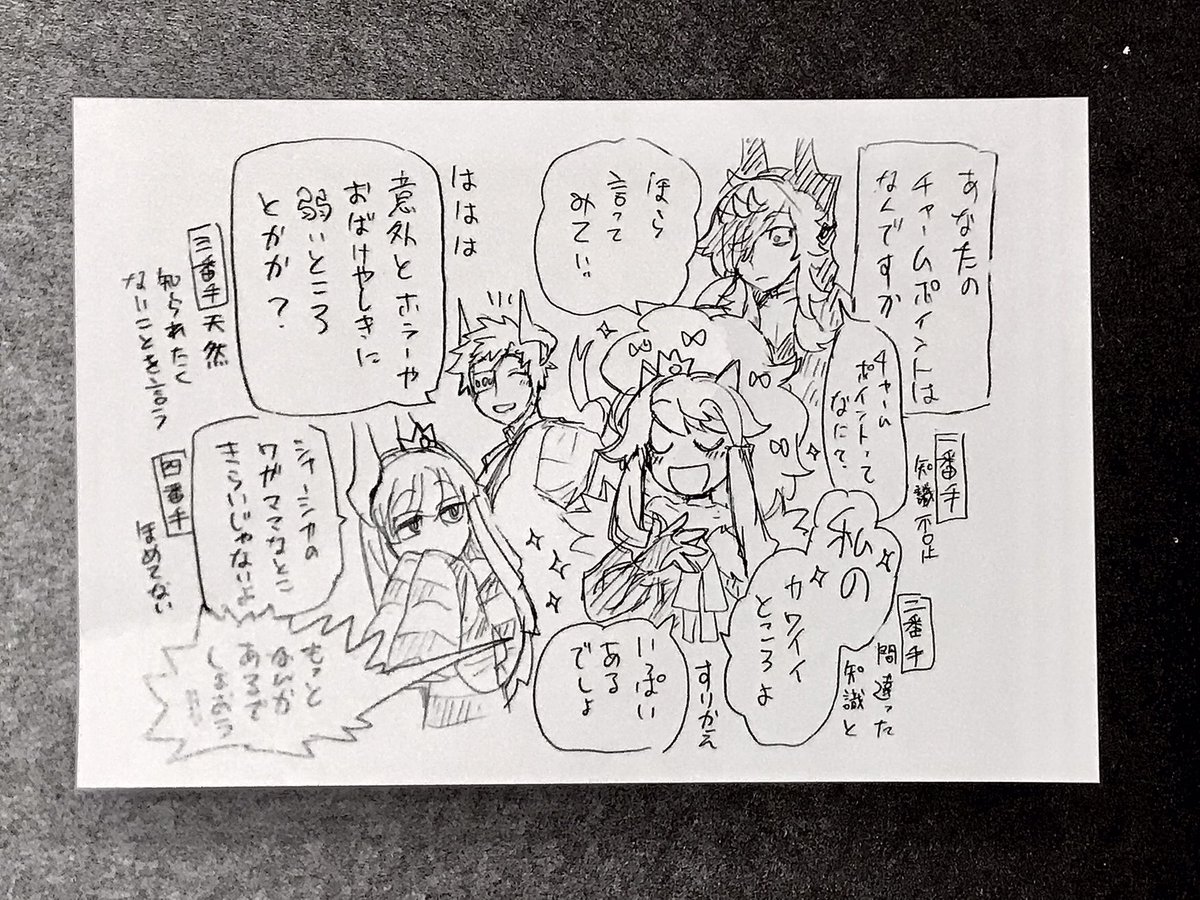 あなたの
チャームポイントは
なんですか
チャーム
ポイントって
なに?
一番手
知識不足
私の
カワイイ
ところよ
二番手
間違った
知識と
すりかえ
ほら
言って
みてい
いっぱい
ある
でしょ
ははは
意外とホラーや
おばけやしきに
弱いところ
とかか?
三番手 天然
知られたく
ないことを言う
シャーシカの
ワガママなとこ
きらいじゃないよ
四番手
ほめてない
もっと
なんか
あるで
しょおう